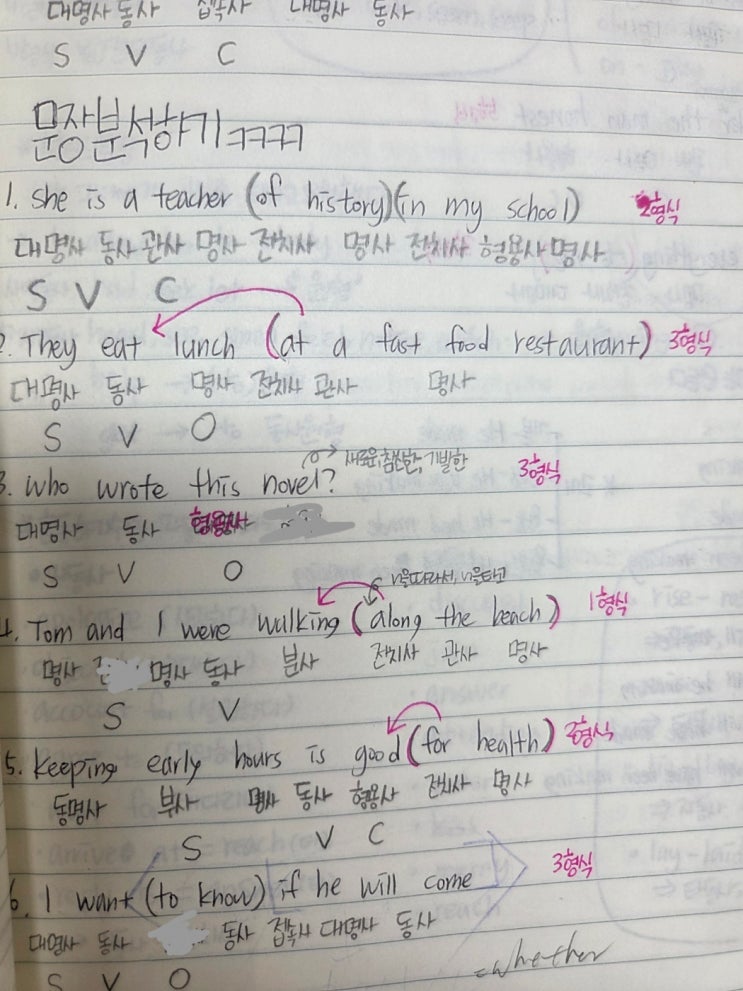 대명사 동사 접속사 대명사 동사
S V C
문장분석하기ㅋㅋㅋㅋ
1. She is a teacher (of history)(in my school) 2형식
대명사 동사 관사 명사 전치사 명사 전치사 형용사 명사
S V C
2. They eat lunch (at a fast food restaurant) 3형식
대명사 동사 명사 전치사 관사 명사
S V O
새로운, 참신한, 기발한
3. Who wrote this novel? 3형식
대명사 동사 형용사
S V O
~을따라서, ~을타고
4. Tom and I were walking (along the beach) 1형식
명사 명사 동사 분사 전치사 관사 명사
S V
5. Keeping early hours is good (for health) 2형식
동명사 부사 명사 동사 형용사 전치사 명사
S V C
6. I want (to know) if he will come 3형식
대명사 동사 동사 접속사 대명사 동사
=whether
S V O